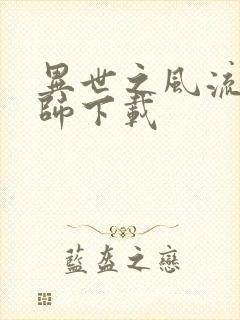 異世之風流
師下載
藍盔之戀